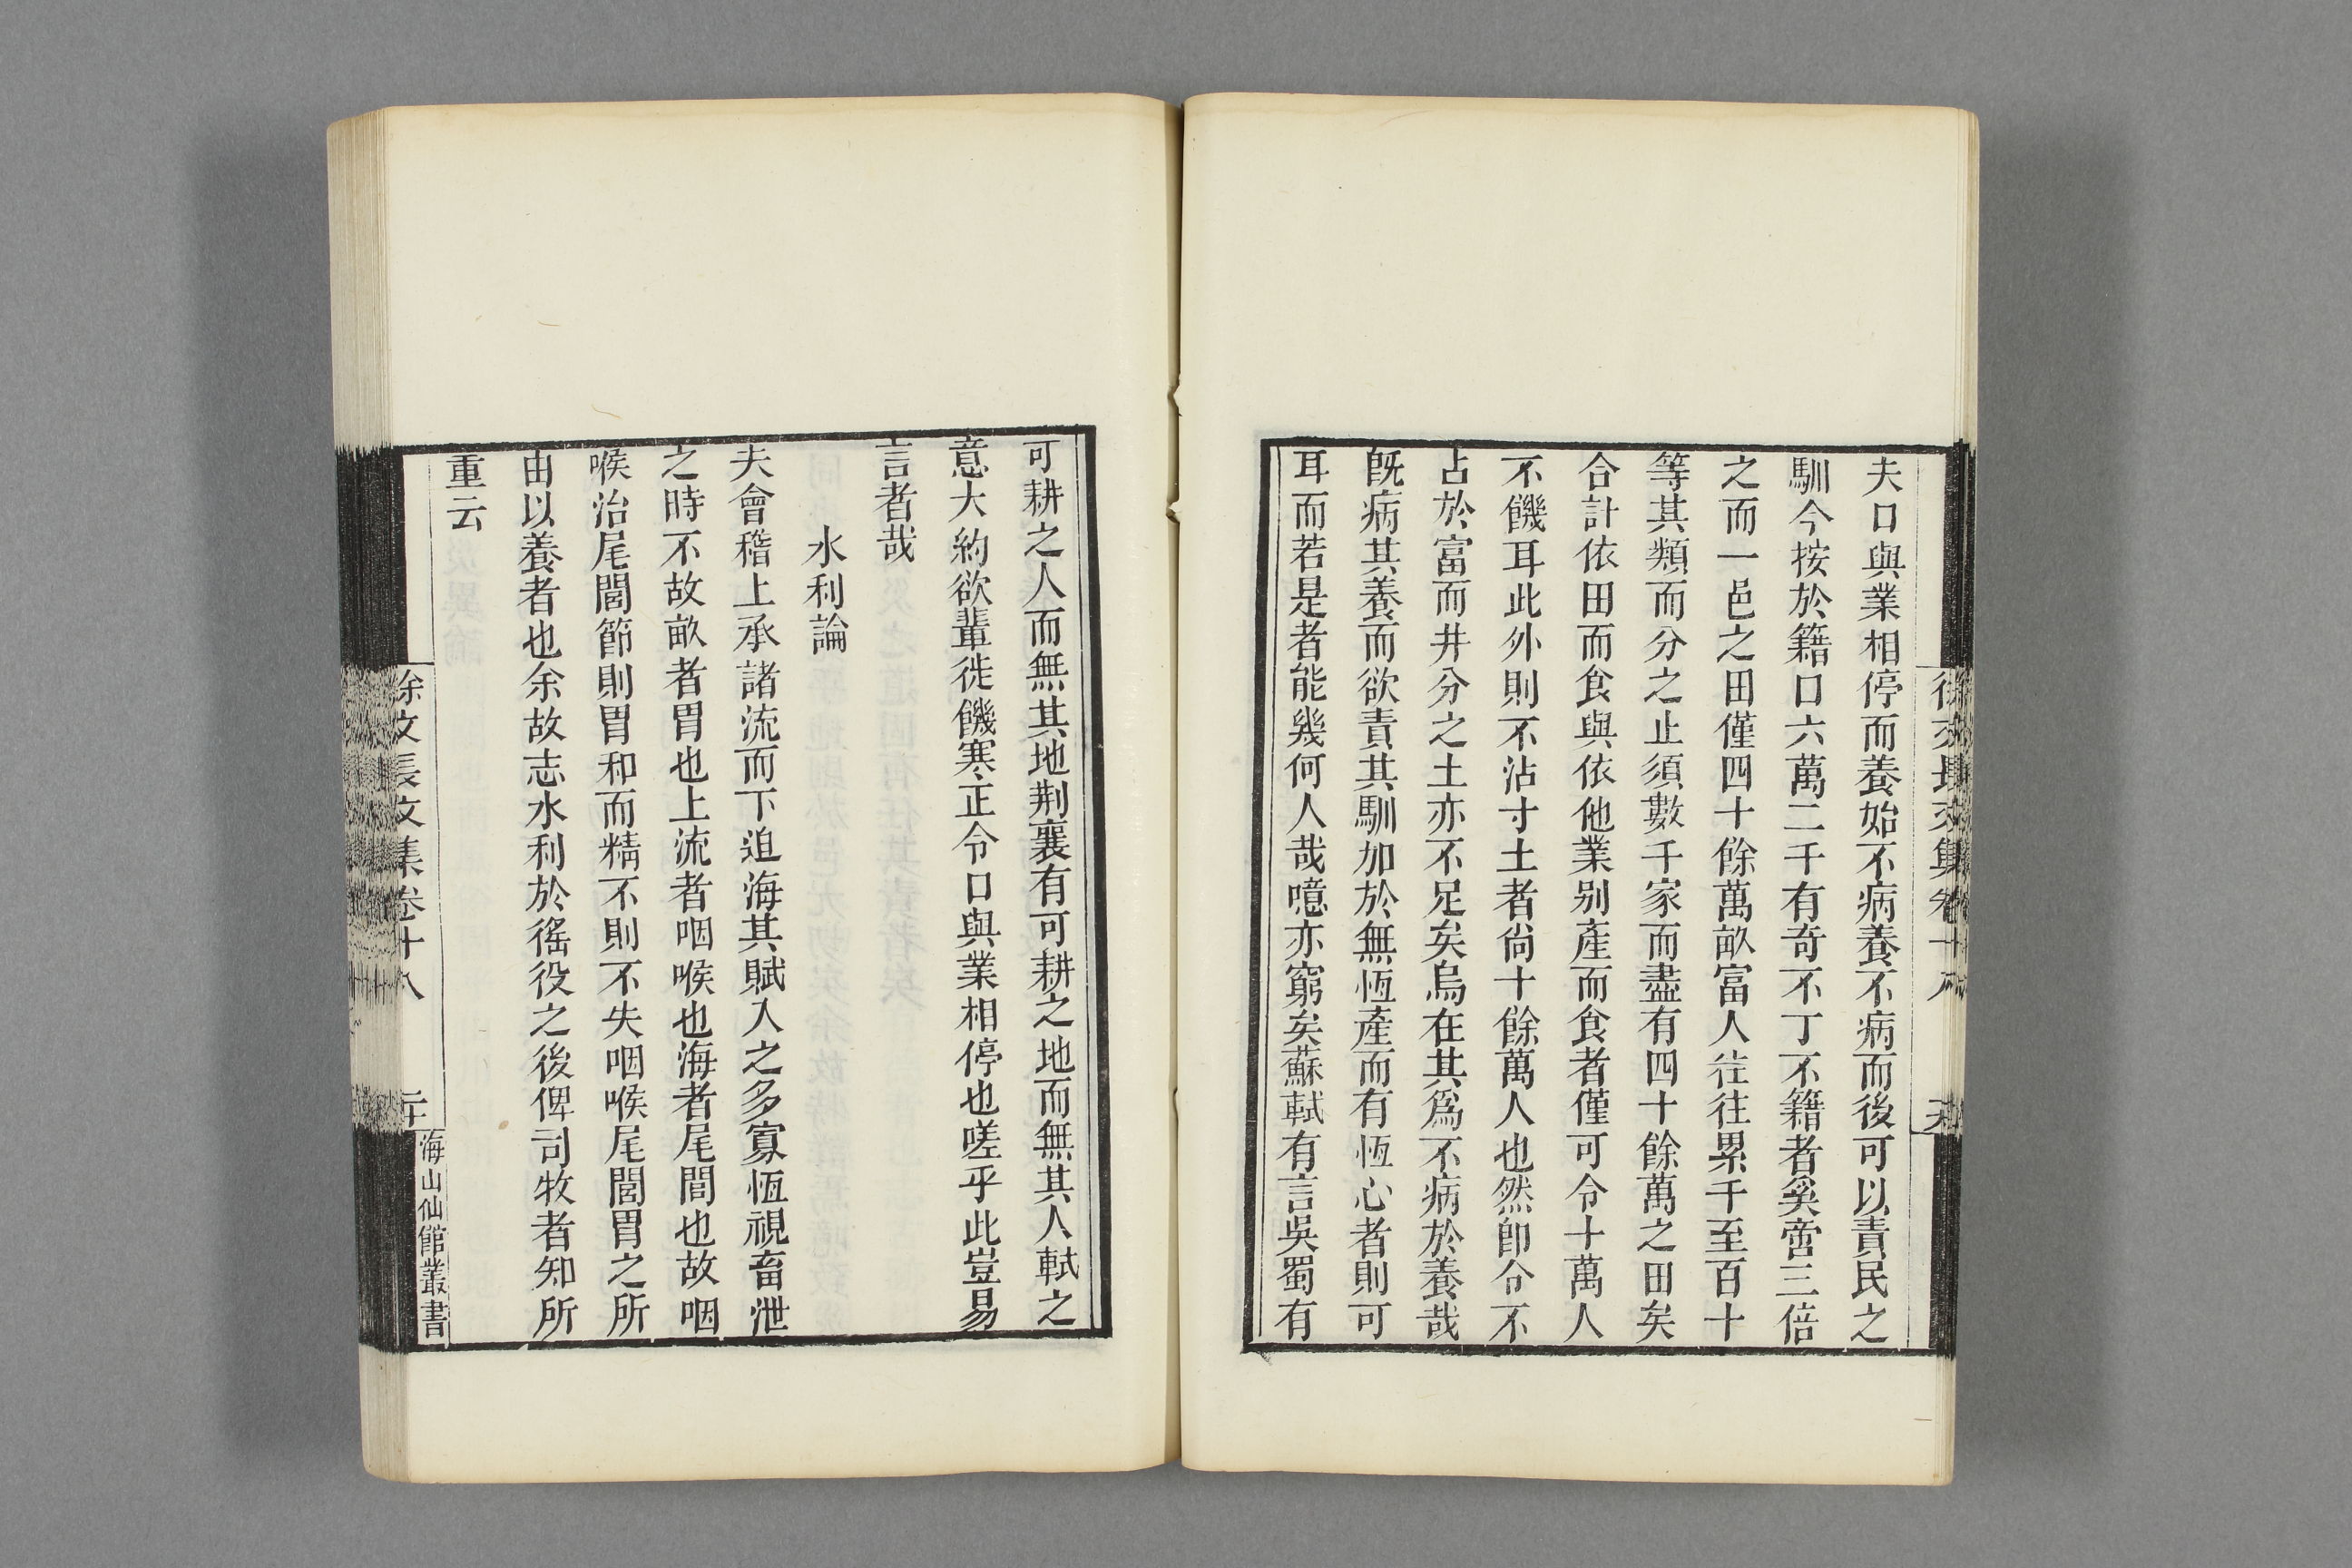 徐文長文集卷十八
夫口與業相停而養始不病養不病而後可以責民之
馴今按於籍口六萬二千有奇不丁不籍者奚啻三倍
之而一邑之田僅四十餘萬畝富人往往累千至百十
等其類而分之止須數千家而盡有四十餘萬之田矣
合計依田而食與依他業别產而食者僅可令十萬人
不饑耳此外則不沾寸土者尚十餘萬人也然卽令不
占於富而井分之土亦不足矣烏在其爲不病於養哉
旣病其養而欲責其馴加於無恆產而有恆心者則可
耳而若是者能幾何人哉噫亦窮矣蘇軾有言吳蜀有
可耕之人而無其地荆襄有可耕之地而無其人軾之
意大約欲輩徙饑寒正令口與業相停也嗟乎此豈易
言者哉
水利論
夫會稽上承諸流而下迫海其賦入之多寡恆視畜泄
之時不故畝者胃也上流者咽喉也海者尾閭也故咽
喉治尾閭節則胃和而精不則不失咽喉尾閭胃之所
由以養者也余故志水利於徭役之後俾司牧者知所
重云
徐文長文集卷十八
二十
海山仙館叢書